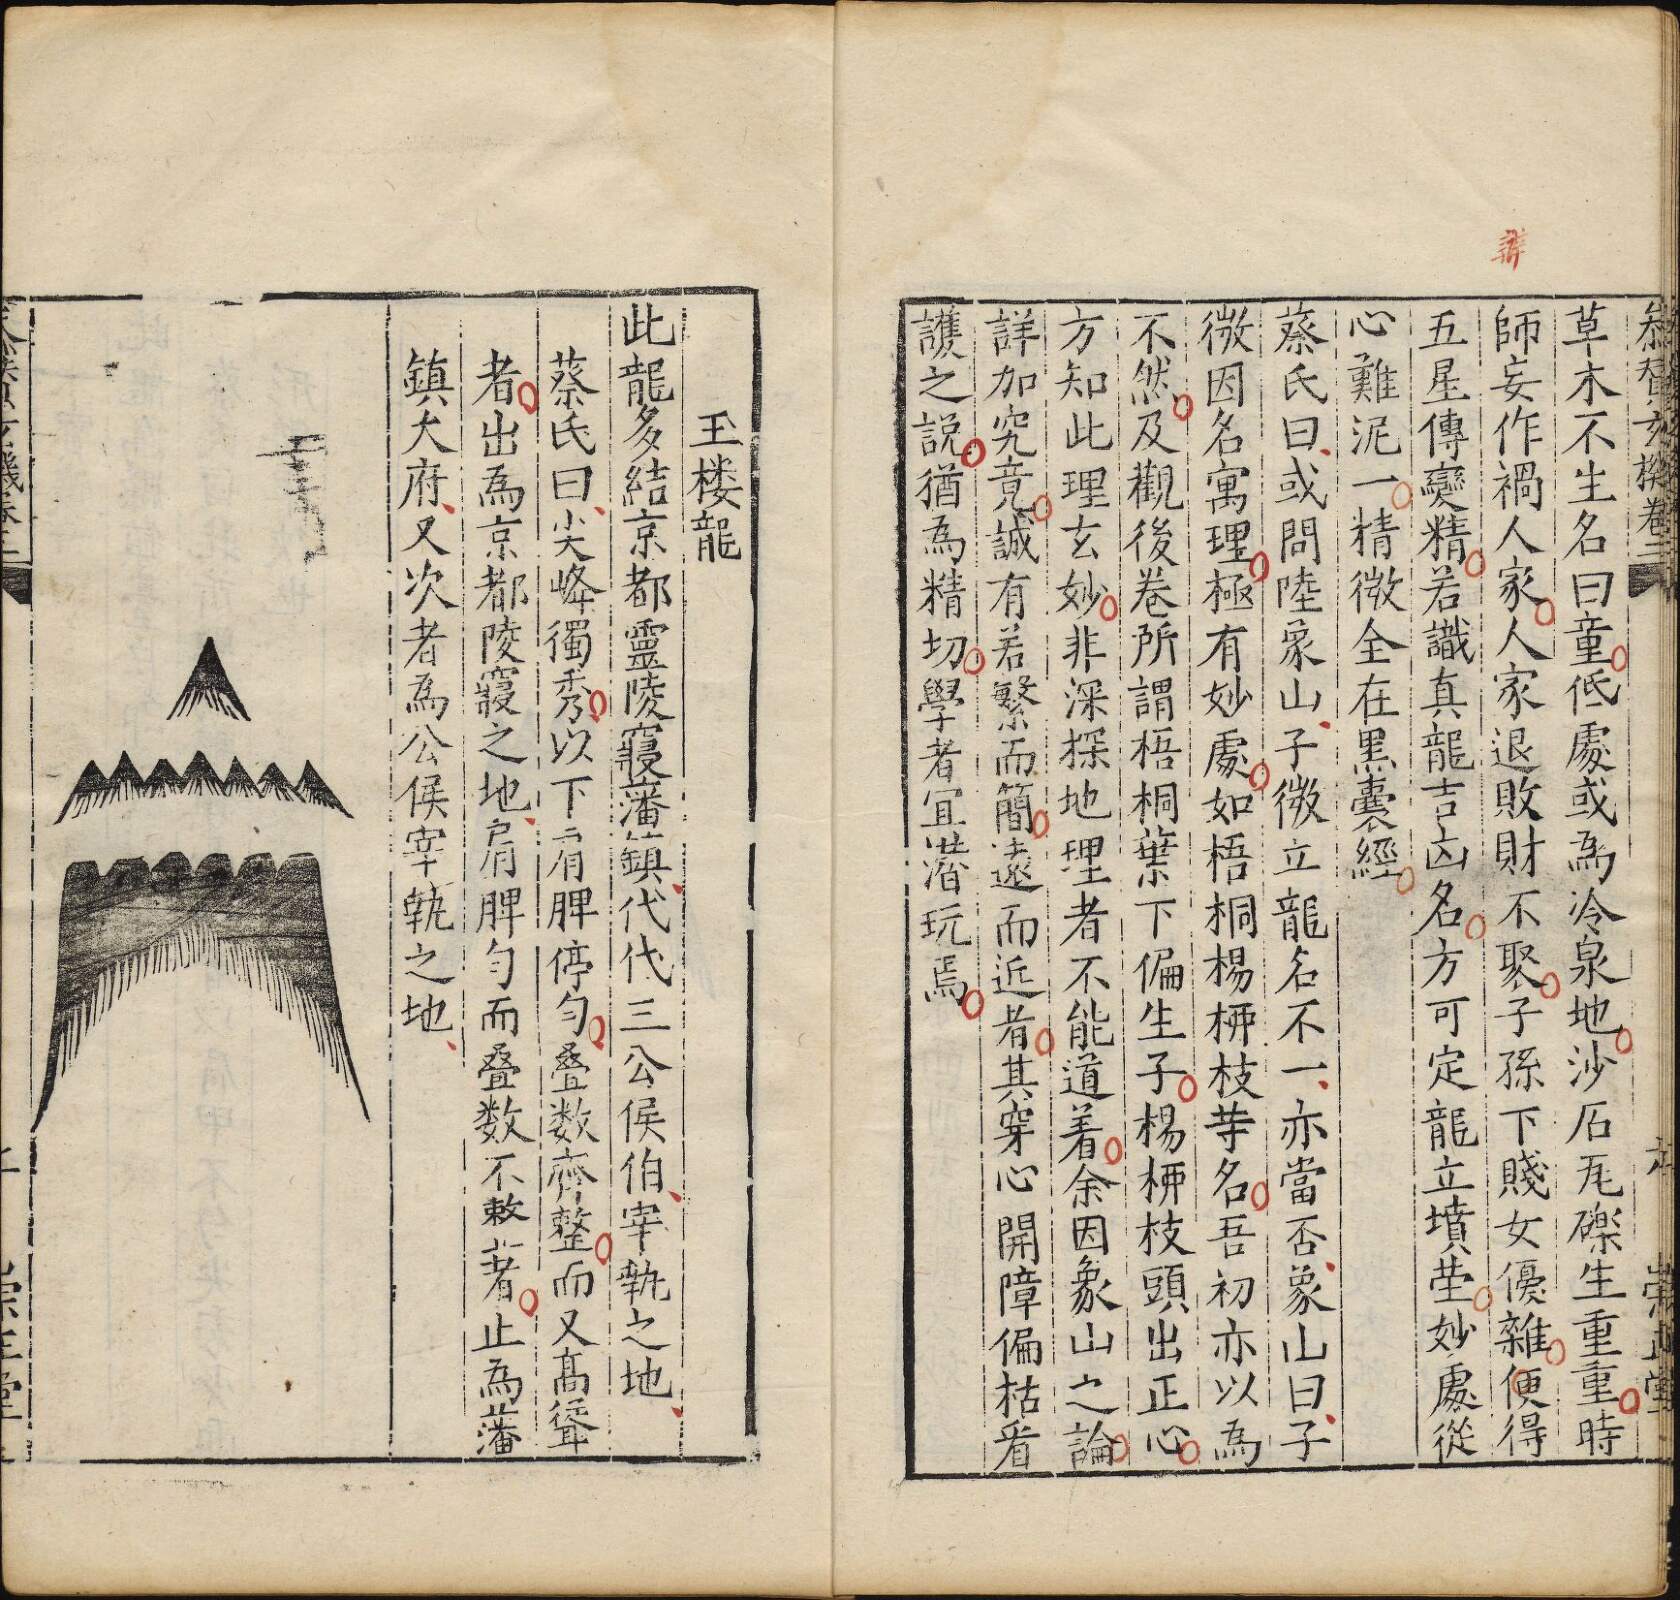 辯
草木不生名曰童低處或為冷泉地沙石瓦礫生重重時
師妄作禍人家人家退敗財不聚子孫下賤女優雜便得
五星傳變精若識真龍吉凶名方可定龍立墳塋妙處從
心難泥一精微全在黑囊經
蔡氏曰或問陸象山子微立龍名不一亦當否象山曰子
微因名寓理極有妙處如梧桐楊桺枝等名吾初亦以為
不然及觀後卷所謂梧桐葉下偏生子楊桺枝頭出正心
方知此理玄妙非深探地理者不能道着余因象山之論
詳加究竟誠有若繁而簡遠而近者其穿心開障偏枯看
護之說猶為精切學者宜潛玩焉
玉楼龍
此龍多結京都靈陵寢藩鎮代代三公侯伯宰執之地
蔡氏曰尖峰獨秀以下肩脾停勻叠数齊整而又髙聳
者出為京都陵寢之地肩脾勻而叠数不敷者止為藩
鎮大府又次者為公侯宰執之地